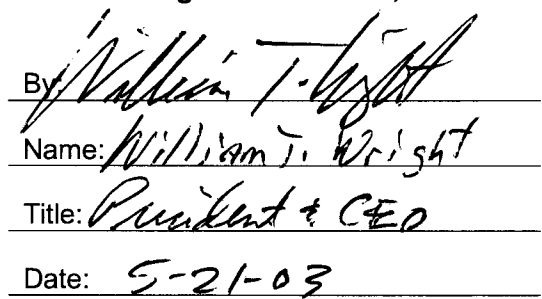 By William T. Wright
Name: William T. Wright
Title: President & CEO
Date: 5-21-03